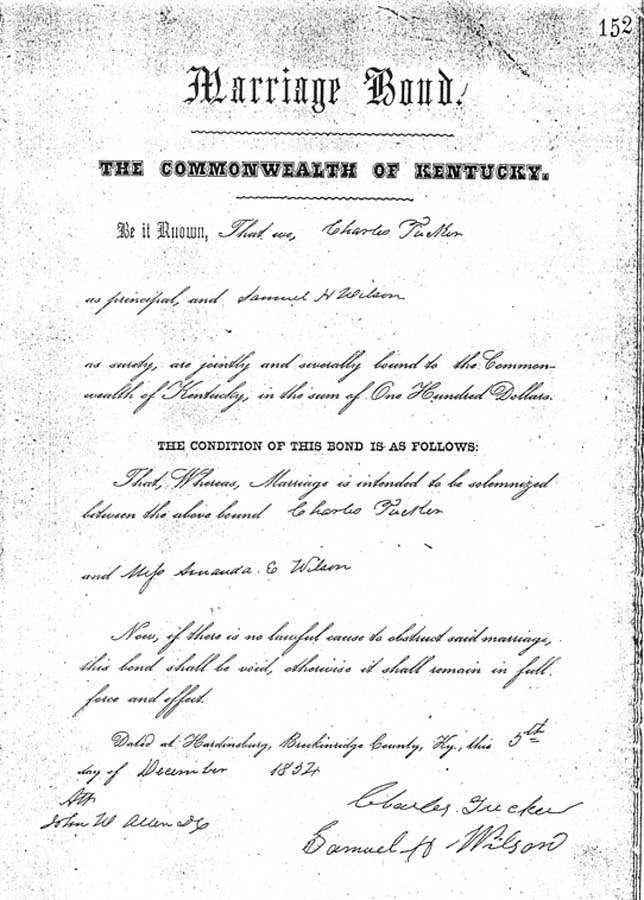 152
Marriage Bond.
THE COMMONWEALTH OF KENTUCKY.
Be it Known, That we, Charles Tucker
as principal, and Samuel H Wilson
as surety, are jointly and severally bound to the Common-
wealth of Kentucky, in the sum of One Hundred Dollars.
THE CONDITION OF THIS BOND IS AS FOLLOWS:
That, Whereas, Marriage is intended to be solemnized
between the above bound Charles Tucker
and Miss Amanda E Wilson
Now, if there is no lawful cause to obstruct said marriage,
this bond shall be void, otherwise it shall remain in full
force and effect.
Dated at Hardinsburg, Breckinridge County, Ky., this 5th
day of December 1854
Att
John W Allen
Charles Tucker
Samuel H Wilson